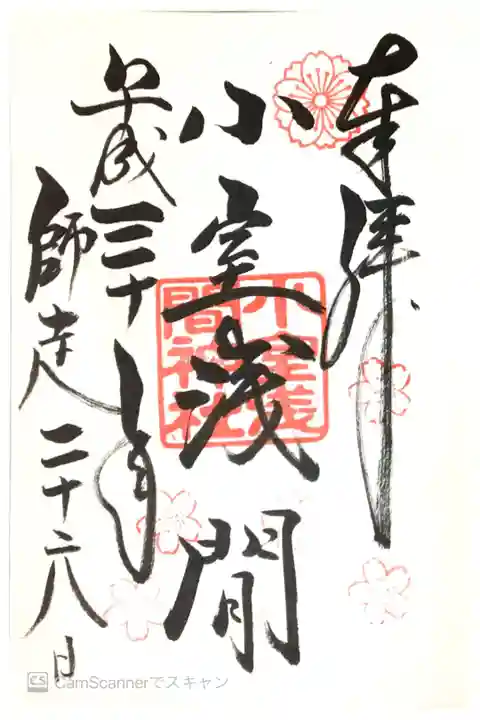 奉拝
小室浅間
小室浅間神社
平成三十年
師走二十六日
CS CamScannerでスキャン